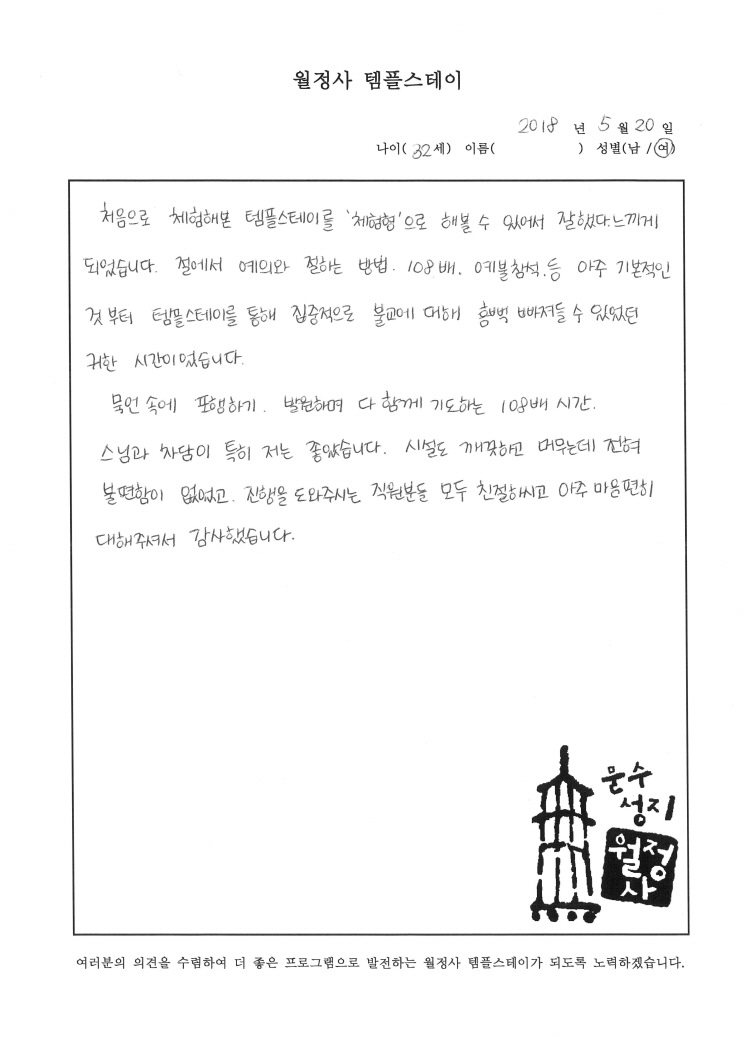 월정사 템플스테이
2018 년 5 월 20 일
나이( 32 세) 이름( ) 성별(남 / 여)
처음으로 체험해본 템플스테이를 '체험형'으로 해볼 수 있어서 잘했다.느끼게
되었습니다. 절에서 예의와 절하는 방법. 108배. 예불참석.등 아주 기본적인
것부터 템플스테이를 통해 집중적으로 불교에 대해 흠뻑 빠져들 수 있었던
귀한 시간이었습니다.
묵언 속에 포행하기. 발원하며 다 함께 기도하는 108배 시간.
스님과 차담이 특히 저는 좋았습니다. 시설도 깨끗하고 머무는데 전혀
불편함이 없었고. 진행을 도와주시는 직원분들 모두 친절하시고 아주 마음편히
대해주셔서 감사했습니다.
문수
성지
월정
사
여러분의 의견을 수렴하여 더 좋은 프로그램으로 발전하는 월정사 템플스테이가 되도록 노력하겠습니다.